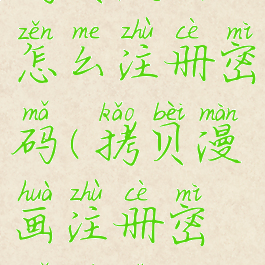 zěn me zhù cè mì
怎么注册密
mǎ kǎo bèi màn
码(拷贝漫
huà zhù cè mì
画注册密